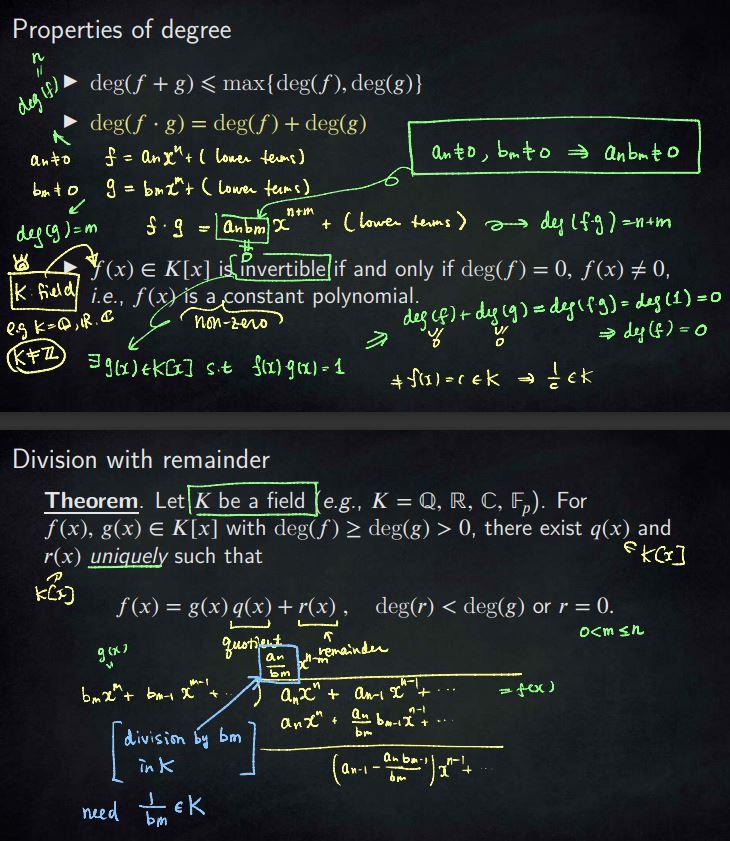 Properties of degree
n
=
deg(f) ▶ deg(f + g) ⩽ max{deg(f), deg(g)}
▶ deg(f · g) = deg(f) + deg(g)
an≠0 f = anxⁿ + ( lower terms)
an≠0, bm≠0 ⇒ anbm≠0
bm≠0 g = bmxᵐ + ( lower terms)
deg(g)=m f·g = anbm xⁿ⁺ᵐ + (lower terms) ⟿ deg(f·g)=n+m
≠ 0
▶ f(x) ∈ K[x] is invertible if and only if deg(f) = 0, f(x) ≠ 0,
K: field i.e., f(x) is a constant polynomial.
e.g K=ℚ, ℝ, ℂ non-zero ⇒ deg(f) + deg(g) = deg(fg) = deg(1) = 0
K≠ℤ ⇒ deg(f) = 0
∃ g(x) ∈ K[x] s.t f(x)g(x) = 1
f(x) = c ∈ K ⇒ 1/c ∈ K
Division with remainder
Theorem. Let K be a field (e.g., K = ℚ, ℝ, ℂ, 𝔽p). For
f(x), g(x) ∈ K[x] with deg(f) ≥ deg(g) > 0, there exist q(x) and
r(x) uniquely such that
∈ K[x]
K[x]
f(x) = g(x) q(x) + r(x) , deg(r) < deg(g) or r = 0.
0<m≤n
quotient remainder
g(x)
an/bm xⁿ⁻ᵐ
bmxᵐ + bm-1 xᵐ⁻¹ + ··· ) anxⁿ + an-1 xⁿ⁻¹ + ··· = f(x)
anxⁿ + an/bm bm-1 xⁿ⁻¹ + ···
[division by bm
in K]
(an-1 − an bm-1/bm) xⁿ⁻¹ + ···
need 1/bm ∈ K